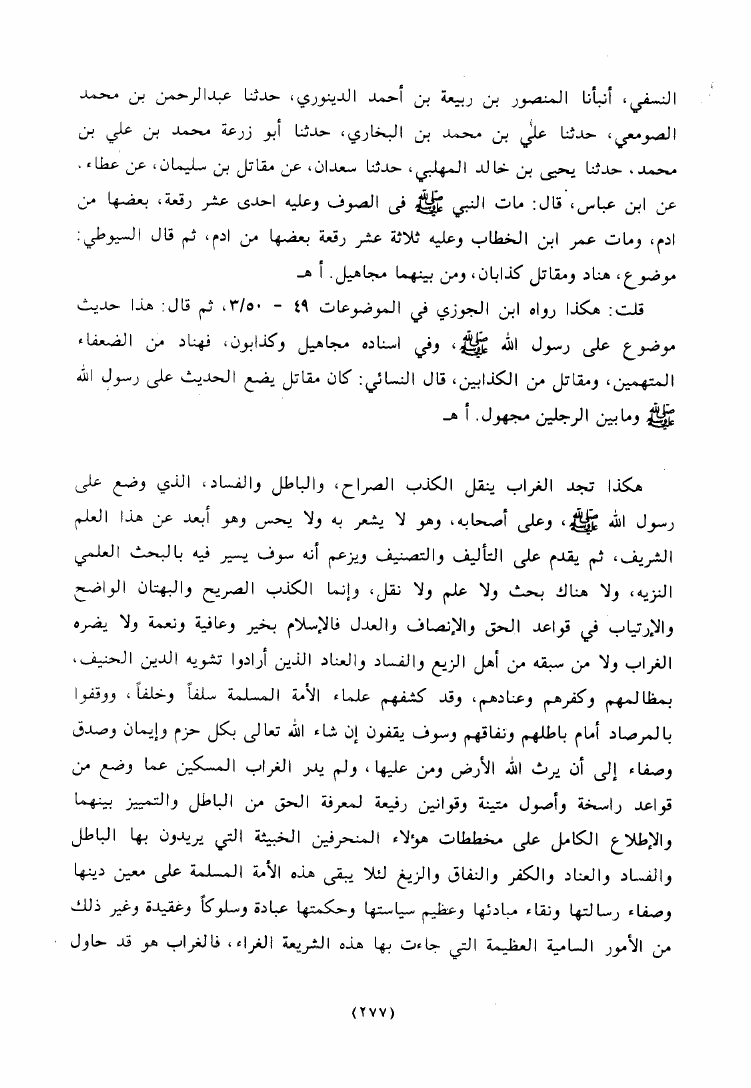 النسفي، أنبأنا المنصور بن ربيعة بن أحمد الدينوري، حدثنا عبدالرحمن بن محمد
الصومعي، حدثنا علي بن محمد بن البخاري، حدثنا أبو زرعة محمد بن علي بن
محمد، حدثنا يحيى بن خالد المهلبي، حدثنا سعدان، عن مقاتل بن سليمان، عن عطاء،
عن ابن عباس، قال: مات النبي ﷺ فى الصوف وعليه احدى عشر رقعة، بعضها من
ادم، ومات عمر ابن الخطاب وعليه ثلاثة عشر رقعة بعضها من ادم، ثم قال السيوطي:
موضوع، هناد ومقاتل كذابان، ومن بينهما مجاهيل. أ هـ
قلت: هكذا رواه ابن الجوزي في الموضوعات ٤٩ - ٣/٥٠، ثم قال: هذا حديث
موضوع على رسول الله ﷺ، وفي اسناده مجاهيل وكذابون، فهناد من الضعفاء
المتهمين، ومقاتل من الكذابين، قال النسائي: كان مقاتل يضع الحديث على رسول الله
ﷺ ومابين الرجلين مجهول. أ هـ
هكذا تجد الغراب ينقل الكذب الصراح، والباطل والفساد، الذي وضع على
رسول الله ﷺ، وعلى أصحابه، وهو لا يشعر به ولا يحس وهو أبعد عن هذا العلم
الشريف، ثم يقدم على التأليف والتصنيف ويزعم أنه سوف يسير فيه بالبحث العلمي
النزيه، ولا هناك بحث ولا علم ولا نقل، وإنما الكذب الصريح والبهتان الواضح
والإرتياب في قواعد الحق والإنصاف والعدل فالإسلام بخير وعافية ونعمة ولا يضره
الغراب ولا من سبقه من أهل الزيغ والفساد والعناد الذين أرادوا تشويه الدين الحنيف،
بمظالمهم وكفرهم وعنادهم، وقد كشفهم علماء الأمة المسلمة سلفاً وخلفاً، ووقفوا
بالمرصاد أمام باطلهم ونفاقهم وسوف يقفون إن شاء الله تعالى بكل حزم وإيمان وصدق
وصفاء إلى أن يرث الله الأرض ومن عليها، ولم يدر الغراب المسكين عما وضع من
قواعد راسخة وأصول متينة وقوانين رفيعة لمعرفة الحق من الباطل والتمييز بينهما
والإطلاع الكامل على مخططات هؤلاء المنحرفين الخبيثة التي يريدون بها الباطل
والفساد والعناد والكفر والنفاق والزيغ لئلا يبقى هذه الأمة المسلمة على معين دينها
وصفاء رسالتها ونقاء مبادئها وعظيم سياستها وحكمتها عبادة وسلوكاً وعقيدة وغير ذلك
من الأمور السامية العظيمة التي جاءت بها هذه الشريعة الغراء، فالغراب هو قد حاول
(٢٧٧)